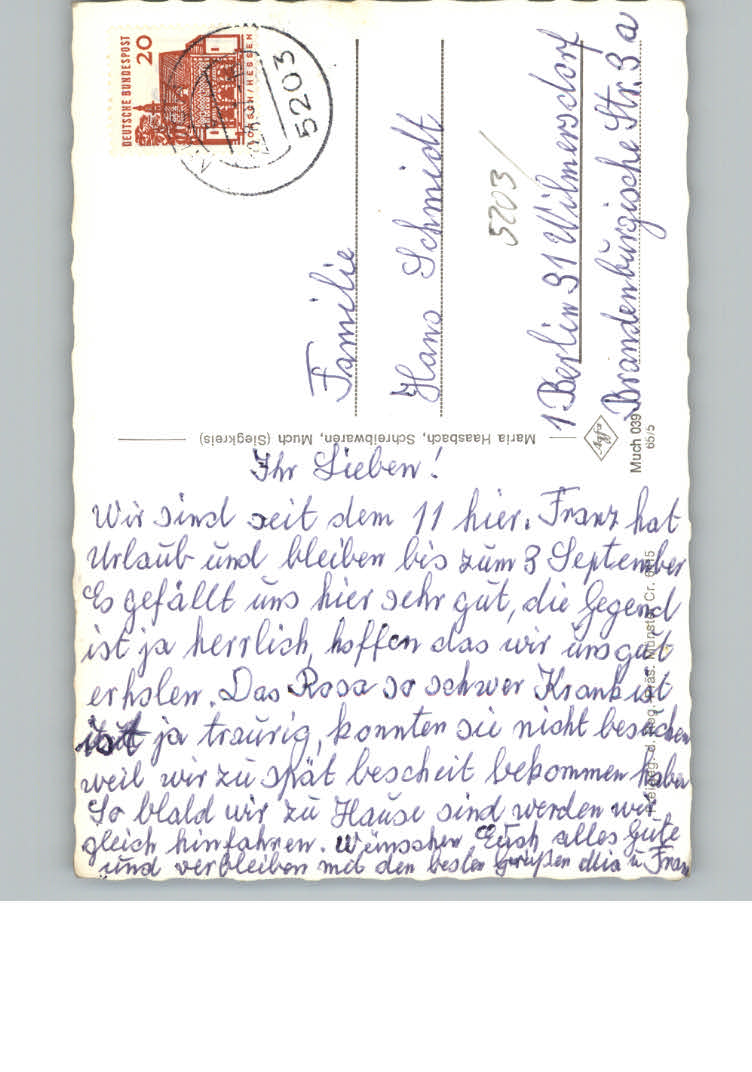 DEUTSCHE BUNDESPOST
20
LORSCH/HESSEN
5203
Familie
Hans Schmidt
5203/
1 Berlin 31 Wilmersdorf
Brandenburgische Str. 3a
Maria Haasbach, Schreibwaren, Much (Siegkreis)
Agfa
Much 039
65/5
Ihr Lieben!
Wir sind seit dem 11 hier. Franz hat
Urlaub und bleiben bis zum 3 September
Es gefällt uns hier sehr gut, die Gegend
ist ja herrlich, hoffen das wir uns gut
erholen. Das Rosa so schwer Krank ist
ist ja traurig, konnten sie nicht besuchen
weil wir zu spät bescheit bekommen habe
So blald wir zu Hause sind werden wir
gleich hinfahren. Wünschen Euch alles Gute
und verbleiben mit den besten Grüßen Mia u Franz